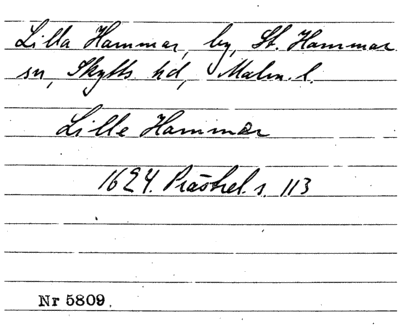 Lilla Hammar, by, St. Hammar
sn, Skytts hd, Malm. l.
Lille Hammar
1624. Prästrel. s. 113
Nr 5809.